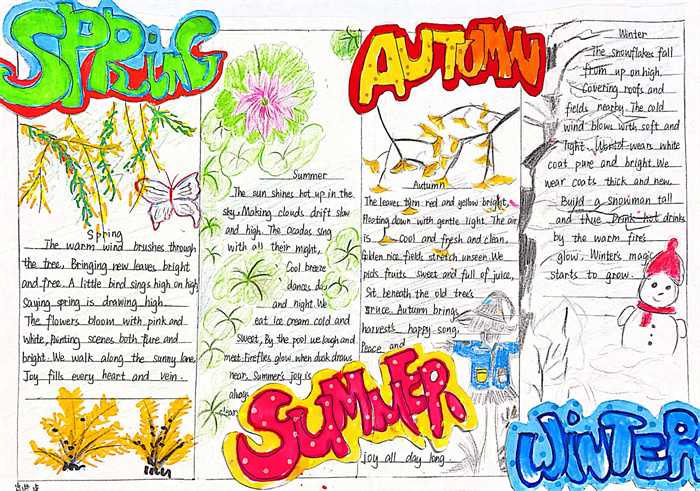 SPRING
Spring
The warm wind brushes through
the tree, Bringing new leaves bright
and free. A little bird sings high on high
Saying spring is drawing high.
The flowers bloom with pink and
white, Painting scenes both pure and
bright. We walk along the sunny lane,
Joy fills every heart and vein.
Summer
The sun shines hot up in the
sky. Making clouds drift slow
and high. The acadas sing
with all their might,
Cool breeze
dances day
and night. We
eat ice cream cold and
sweet, By the pool we laugh and
meet. Fireflies glow when dusk draws
near, Summer's joy is
always
clear.
SUMMER
AUTUMN
Autumn
The leaves turn red and yellow bright,
Floating down with gentle light. The air
is cool and fresh and clean,
Golden rice fields stretch unseen. We
pick fruits sweet and full of juice,
Sit beneath the old tree's
sruce. Autumn brings
harvest's happy song,
Peace and
joy all day long.
Winter
The snowflakes fall
from up on high.
Covering roofs and
fields nearby. The cold
wind blows with soft and
light. World wears white
coat pure and bright. We
wear coats thick and new,
Build a snowman tall
and thue. Drink hot drinks
by the warm fire's
glow, Winter's magic
starts to grow.
WINTER